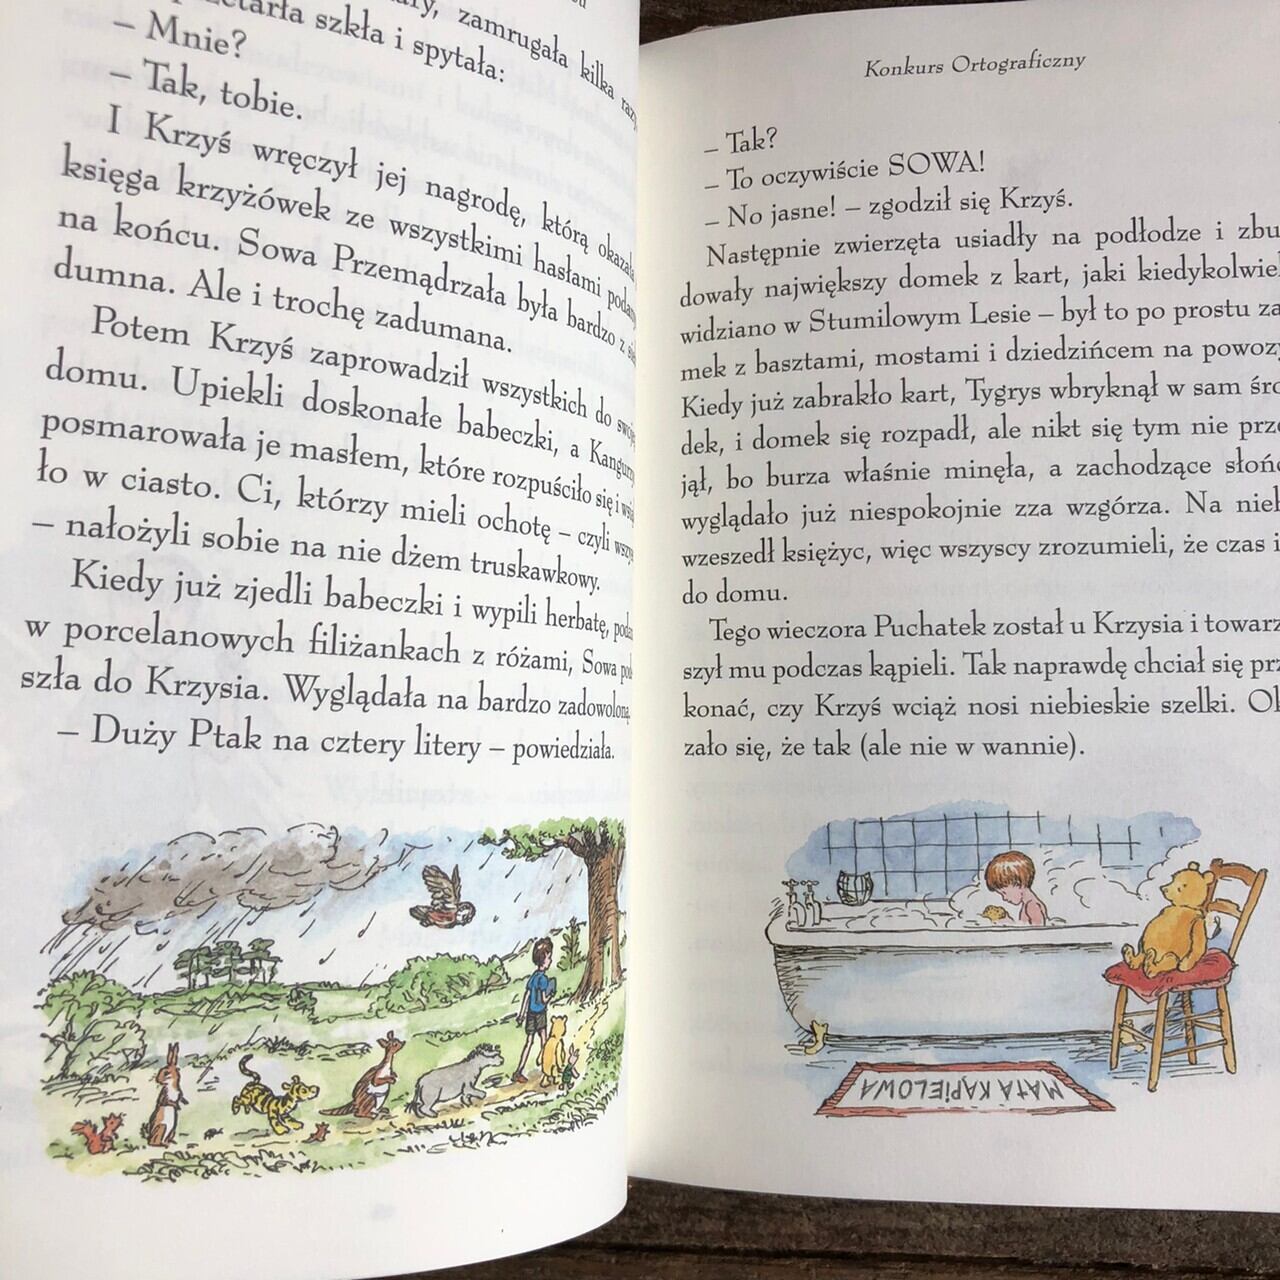 zamrugała kilka razy,
szkła i spytała:
– Mnie?
– Tak, tobie.
I Krzyś wręczył jej nagrodę, którą okazała
księga krzyżówek ze wszystkimi hasłami
na końcu. Sowa Przemądrzała była bardzo z
dumna. Ale i trochę zadumana.
Potem Krzyś zaprowadził wszystkich do
domu. Upiekli doskonałe babeczki, a
posmarowała je masłem, które rozpuściło się i
ło w ciasto. Ci, którzy mieli ochotę – czyli
– nałożyli sobie na nie dżem truskawkowy.
Kiedy już zjedli babeczki i wypili herbatę,
w porcelanowych filiżankach z różami, Sowa
szła do Krzysia. Wyglądała na bardzo zadowoloną.
– Duży Ptak na cztery litery – powiedziała.
Konkurs Ortograficzny
– Tak?
– To oczywiście SOWA!
– No jasne! – zgodził się Krzyś.
Następnie zwierzęta usiadły na podłodze i zbu
dowały największy domek z kart, jaki kiedykolwiek
widziano w Stumilowym Lesie – był to po prostu za
mek z basztami, mostami i dziedzińcem na powozy
Kiedy już zabrakło kart, Tygrys wbryknął w sam śro
dek, i domek się rozpadł, ale nikt się tym nie prze
jął, bo burza właśnie minęła, a zachodzące słońc
wyglądało już niespokojnie zza wzgórza. Na nieb
wzeszedł księżyc, więc wszyscy zrozumieli, że czas i
do domu.
Tego wieczora Puchatek został u Krzysia i towarz
szył mu podczas kąpieli. Tak naprawdę chciał się prz
konać, czy Krzyś wciąż nosi niebieskie szelki. Ok
zało się, że tak (ale nie w wannie).
MATA KĄPIELOWA